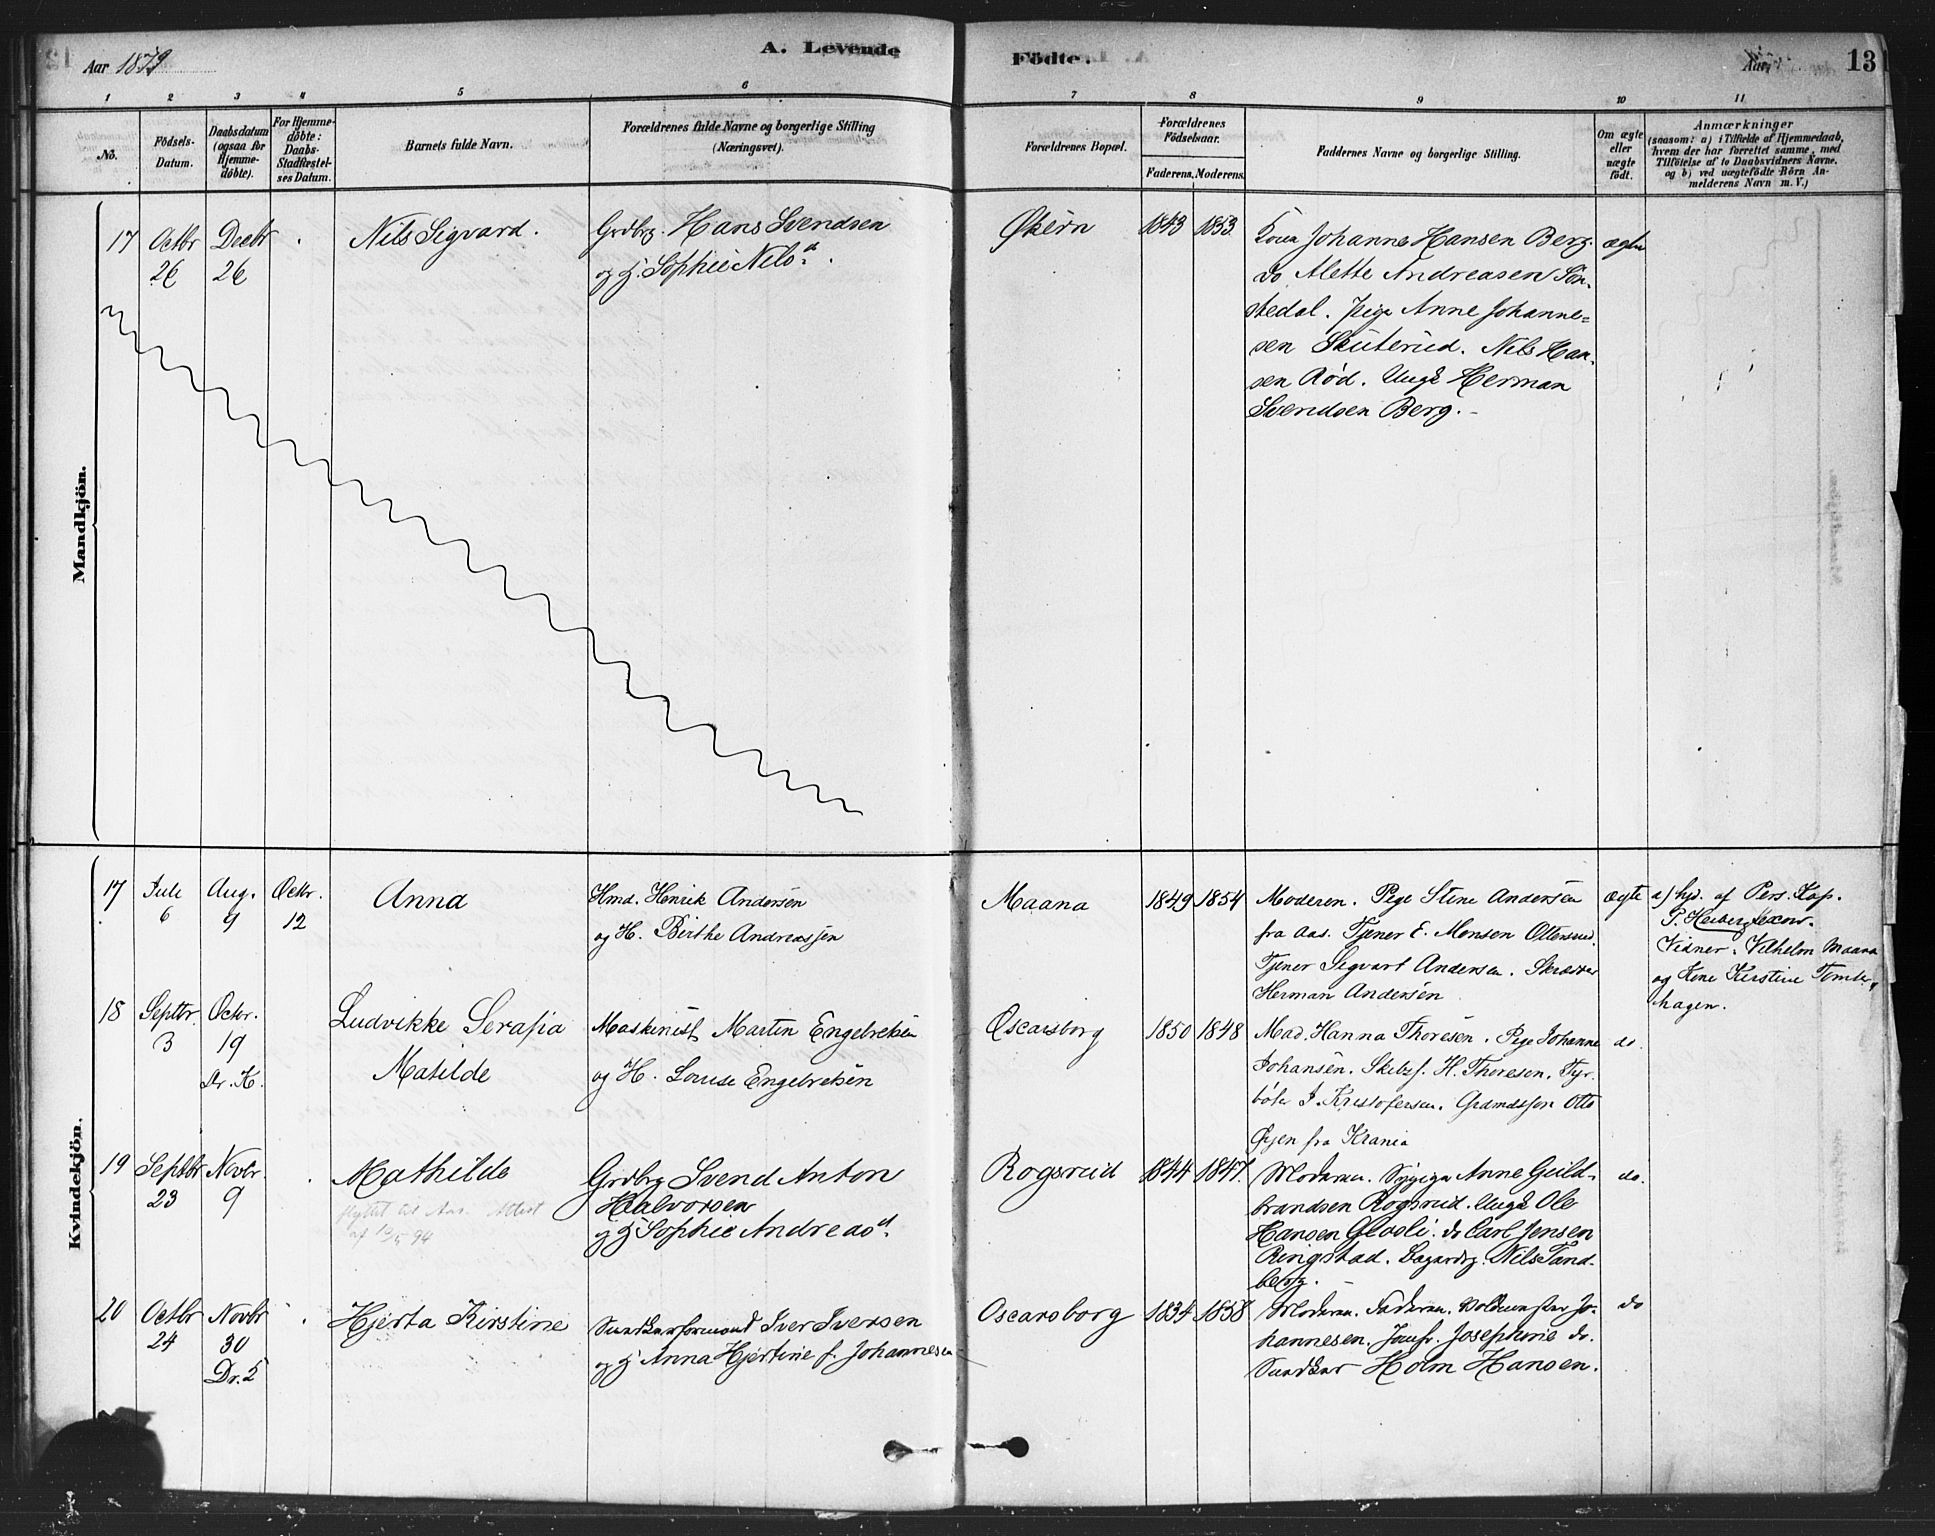 Aar 1879
A. Levende
Födte.
Aar
13
1 2 3 4 5 6 7 8 9 10 11
No.
Födsels-
Datum.
Daabsdatum
(ogsaa for
Hjemme-
döbte).
For Hjemme-
döbte:
Daabs-
Stadfæstel-
ses Datum.
Barnets fulde Navn.
Forældrenes fulde Navne og borgerlige Stilling
(Næringsvei).
Forældrenes Bopæl.
Forældrenes
Födselsaar.
Faderens. Moderens.
Faddernes Navne og borgerlige Stilling.
Om ægte
eller
uægte
födt.
Anmærkninger
(saasom: a) i Tilfælde af Hjemmedaab,
hvem der har forrettet samme, med
Tilföielse af to Daabsvidners Navne,
og b) ved uægtefödte Börn An-
melderens Navn m. V.)
Mandkjön.
17
Octbr
26
Decbr
26
Nils Sigvard.
Grdbrg. Hans Svendsen
og H. Sophie Nilsd.
Økern
1843
1853.
Kone Johanne Hansen Berg.
do Alette Andreasen Tøn-
stedal. Pige Anne Johanne-
sen Skuterud. Nils Han-
sen Rød. Ungk Herman
Svendsen Berg.
ægte
Kvindekjön.
17
Juli
6
Aug.
9
Octbr.
12
Anna
Hmd. Henrik Andersen
og H. Birthe Andreassen
Maana
1849
1854
Moderen. Pige Stine Andersen
fra Aas. Tjener E. Monsen Ottersrud.
Tjener Segvart Andersen. Skræder
Herman Andersen
ægte
a) hj. af Pers. Kap.
P. Heiberg
Vidner. Vilhelm Maana
og Kone Kirstine Tomter-
hagen.
18
Septbr.
3
Octbr.
19
Dr. K.
Ludvikke Serafia
Matilde
Maskinist Martin Engebretsen
og H. Louise Engebretsen
Oscarsborg
1850
1848
Mad. Hanna Thoresen. Pige Johanne
Johansen. Skibsf. H. Thoresen. Fyr-
böter J. Kristofersen. Grdmdssön Otto
Øyen fra Krania
do.
19
Septbr
23
Novbr.
9
Mathilde
flyttet til Aas. Attest
Grdbrg Svend Anton
Halvorsen
og H Sophie Andreasd.
Rogsrud
1844
1847.
Moderen. Anne Guld-
brandsen Rogsrud. Ungk Ole
Hansen Glosli. do Carl Jensen
Ringstad. Nils Tand-
berg.
do.
20
Octbr
24
Novbr
30
Dr. 5
Hjerta Kirstine
Snedkerformand Iver Iversen
og H Anna Hjertine f. Johannesen
Oscarsborg
1834
1838
Moderen. Faderen. Voldmester Jo-
hannesen. Jomfr. Josephine do.
Snedker Holm Hansen.
do